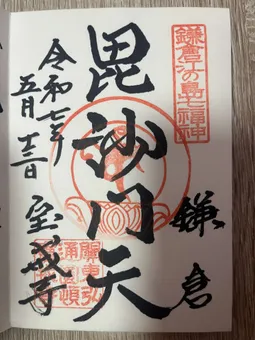 鎌倉江の島七福神
鎌倉
毘沙門天
令和七年
五月 日
宝戒寺
關東弘
通圓頓